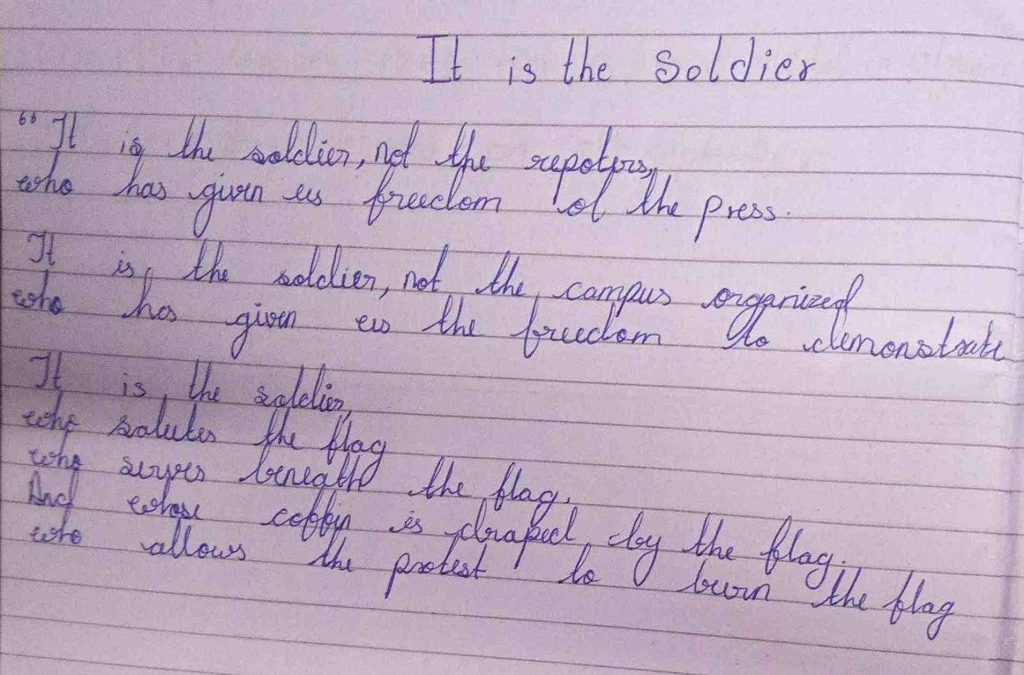 It is the Soldier
"It is the soldier, not the repoters,
who has given us freedom of the press.
It is, the soldier, not the, campus organized
who has given us the freedom to demonstrate
It is, the soldier,
who salutes the flag
who serves beneath the flag.
And whose coffin is draped, by the flag.
who allows the protest to burn the flag